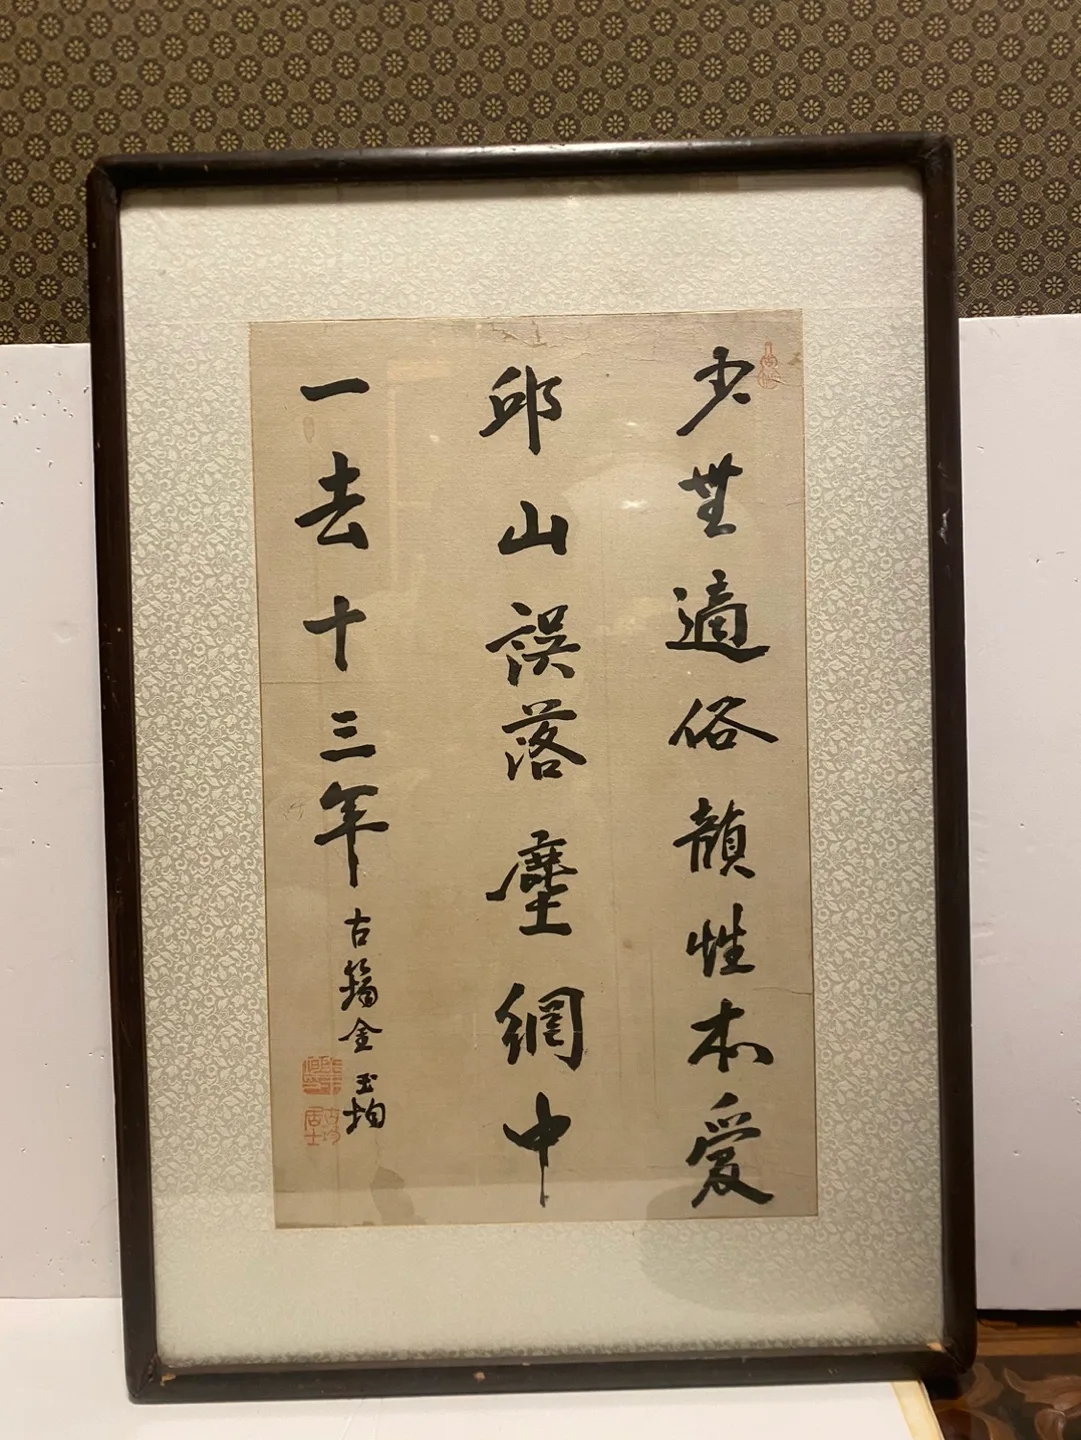 少無適俗韻性本愛
邱山誤落塵網中
一去十三年
古筠金玉均
居士